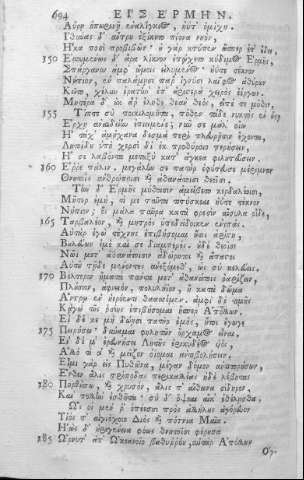 694 ΕΙΣ ΕΡΜΗΝ.
Αὔρῃ ὀπωρινῇ ἐναλίγκιος, ἠΰτ' ὀμίχλη.
Ἰθύσας δ' ἄντρου ἐξίκετο πίονα νηόν,
Ἦκα ποσὶ προβιβῶν· οὐ γὰρ κτύπεν ὥσπερ ἐπ' οὔδει.
150 Ἐσσυμένως δ' ἄρα λίκνον ἐπῴχετο κύδιμος Ἑρμῆς,
Σπάργανον ἀμφ' ὤμοις εἰλυμένος· ἠΰτε τέκνον
Νήπιον, ἐν παλάμῃσι παρ' ἰγνύσι λαῖφος ἀθύρων
Κεῖτο, χέλυν ἐρατὴν ἐπ' ἀριστερὰ χειρὸς ἐέργων.
Μητέρα δ' οὐκ ἄρ' ἔληθε θεὰν θεὸς, εἶπέ τε μῦθον,
155 Τίπτε σὺ ποικιλομῆτα, πόθεν τάδε νυκτὸς ἐν ὥρῃ
Ἔρχῃ ἀναιδείην ἐπιειμένε; νῦν σε μάλ' οἴω
Ἢ τάχ' ἀμήχανα δεσμὰ περὶ πλευρῇσιν ἔχοντα,
Λητοΐδου ὑπὸ χερσὶ δι' ἐκ προθύροιο περήσειν,
Ἢ σε λαβόντα μεταξὺ κατ' ἄγκεα φιλατεύσειν.
160 Ἔρρε πάλιν, μεγάλην σε πατὴρ ἐφύτευσε μέριμναν
Θνητοῖς ἀνθρώποισι καὶ ἀθανάτοισι θεοῖσι.
Τὴν δ' Ἑρμῆς μύθοισιν ἀμείβετο κερδαλέοισι,
Μῆτερ ἐμή, τί με ταῦτα πιτύσκεαι ἠΰτε τέκνον
Νήπιον; ὃς μάλα παῦρα κατὰ φρεσὶν αἴσυλα οἶδε,
165 Ταρβαλέον, καὶ μητρὸς ὑπεδείδοικεν ἐνιπάς.
Αὐτὰρ ἐγὼ τέχνης ἐπιβήσομαι ἥτις ἀρίστη,
ἐμὲ καὶ σὲ διαμπερές. οὐδὲ θεοῖσι
Νῶϊ μετ' ἀθανάτοισιν ἀδώρητοι καὶ ἄπαστοι
Αὐτοῦ τῇδε μένοντες ἀνεξόμεθ', ὡς σὺ κελεύεις.
170 Βέλτερον ἤματα πάντα μετ' ἀθανάτοις ὀαρίζειν,
Πλούσιον, ἀφνειὸν, πολυλήϊον, ἢ κατὰ δῶμα
Ἄντρῳ ἐν ἠερόεντι θαασσέμεν. ἀμφὶ δὲ τιμῆς
Κᾀγὼ τῆς ὁσίης ἐπιβήσομαι ἧσπερ Ἀπόλλων.
Εἰ δέ κε μὴ δώῃσι πατὴρ ἐμὸς, ἤτοι ἔγωγε
175 Πειρήσω· δύναμαι φιλητῶν ὄρχαμος εἶναι.
Εἰ δέ μ' ἐρευνήσει Λητοῦς ἐρικυδέος υἱὸς,
Ἄλλο τί οἱ καὶ μεῖζον ὀΐομαι ἀντιβολήσειν.
Εἶμι γὰρ εἰς Πυθῶνα, μέγαν δόμον ἀντιτορήσων,
Ἔνθεν ἅλις τρίποδας περικαλλέας ἠδὲ λέβητας
180 Πορθήσω, καὶ χρυσὸν, ἅλις τ' αἴθωνα σίδηρον,
Καὶ πολλὴν ἐσθῆτα· σὺ δ' ὄψεαι αἴκ' ἐθέλησθα.
Ὣς οἱ μέν ῥ' ἐπέεσσι πρὸς ἀλλήλους ἀγόρευον
Υἱός τ' αἰγιόχοιο Διὸς καὶ πότνια Μαῖα.
Ἠὼς δ' ἠριγένεια φόως θνητοῖσι φέρουσα
185 Ὤρνυτ' ἀπ' Ὠκεανοῖο βαθυρρόου, αὐτὰρ Ἀπόλλων